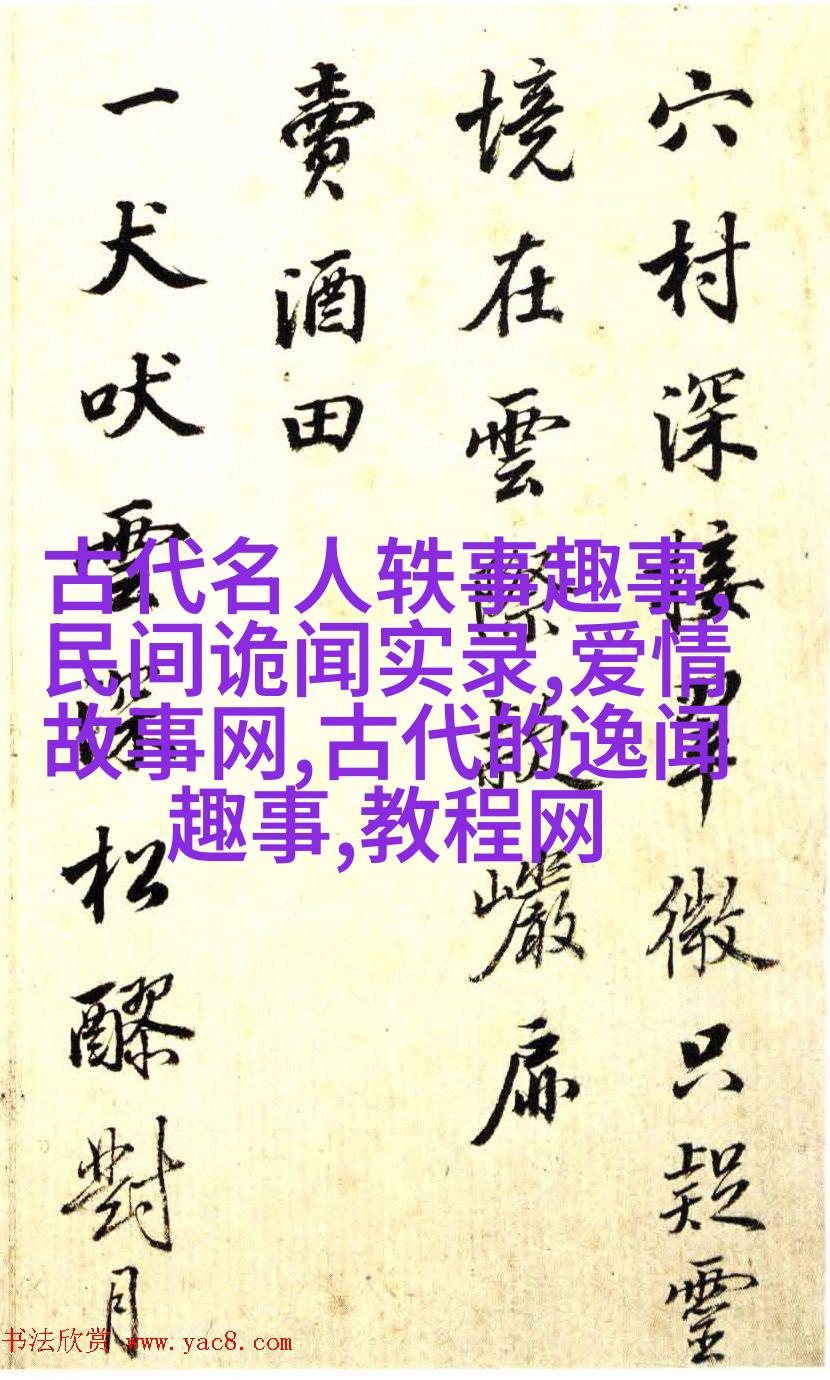 穴村深接翠微只疑靈
境在雲際款巖扉
賣酒田
一犬吠雲深松醪對月
古代名人轶事趣事,
民间诡闻实录,爱情
故事网,古代的逸闻
趣事,教程网
书法欣赏 www.yac8.com